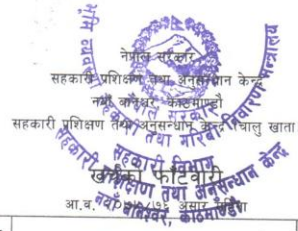 नेपाल सरकार
सहकारी प्रशिक्षण तथा अनुसन्धान केन्द्र
नयाँ बानेश्वर काठमाण्डौ
सहकारी प्रशिक्षण तथा अनुसन्धान केन्द्र चालु खाता
खर्चको फाँटवारी
आ.व. २०७५/७६ असार
सहकारी विभाग
सहकारी प्रशिक्षण तथा अनुसन्धान केन्द्र
नयाँ बानेश्वर, काठमाण्डौ